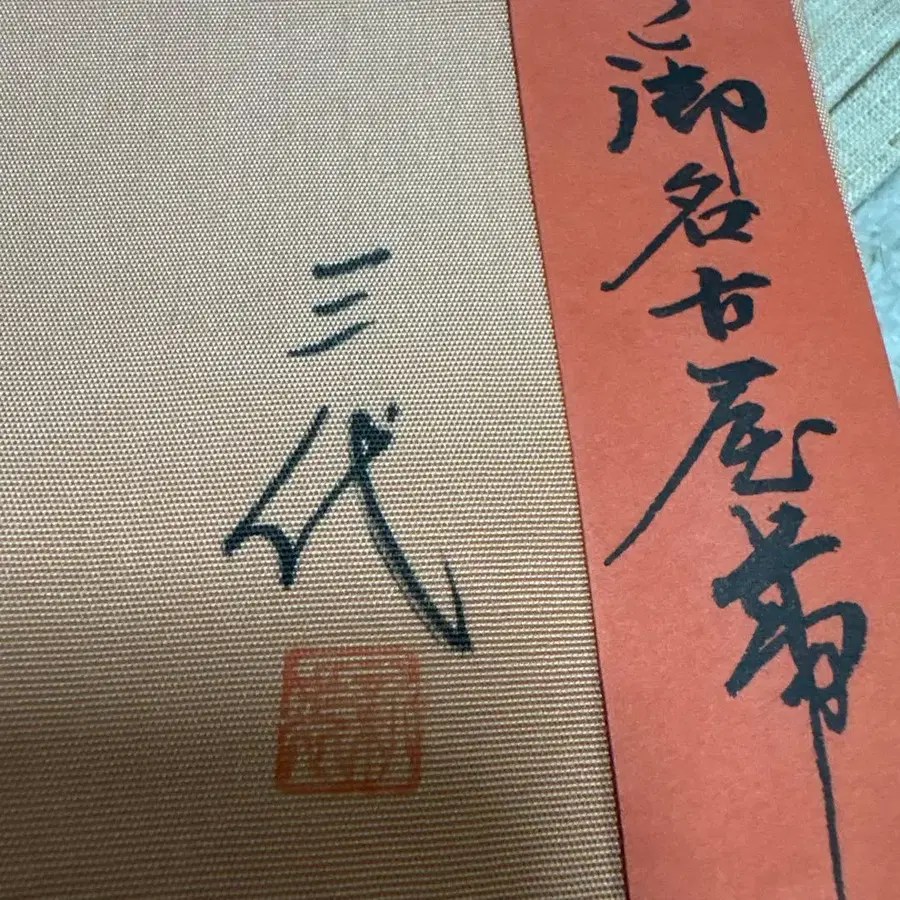 御名古屋帯
三代